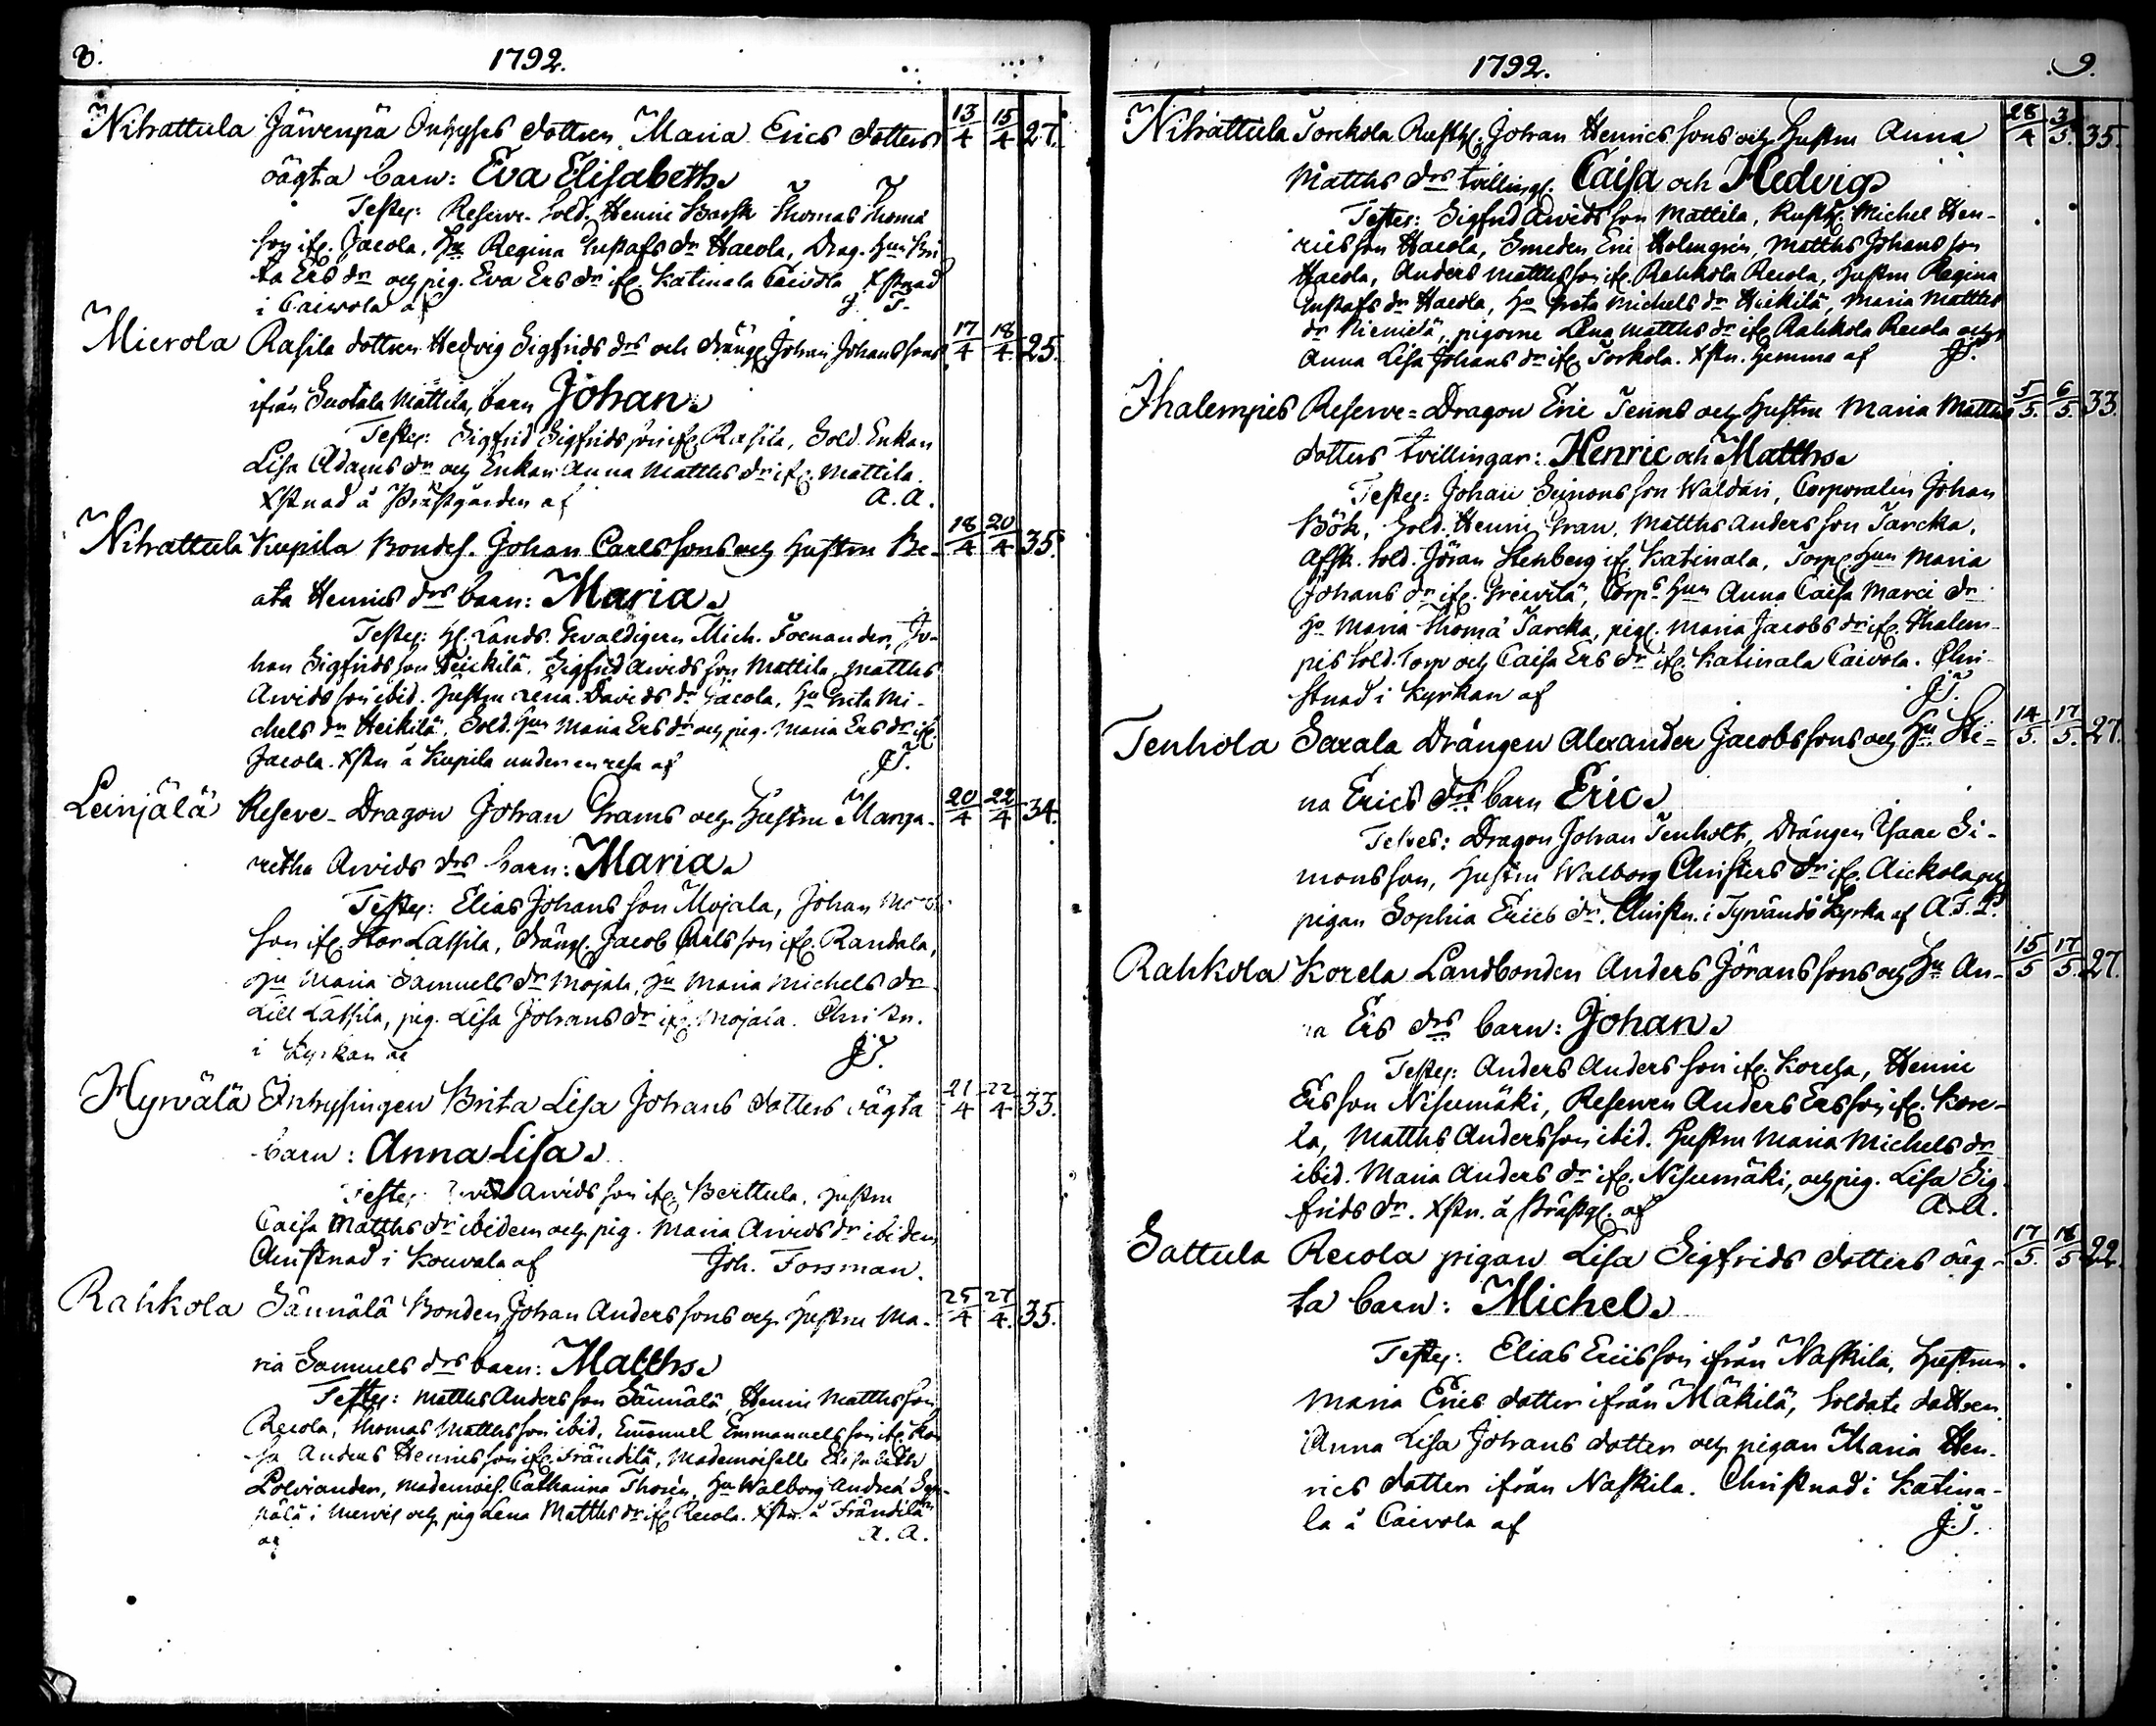 8. 1792.
Nihattula Järvenpä Inhyses dottren Maria Erics dotters 13/4 15/4 27.
oägta barn: Eva Elisabeth.
Testes: Reserve Sold. Henric Barsk Thomas Thomæ
son ifr. Jacola, Hu Regina Gustafs dr Hacola, Drag. Hun Bri
ta Ers dr och pig. Eva Ers dr ifr. Katinala Caivola Xstnad
i Caivola af J. T.
Mierola Rasila dottren Hedvig Sigfrids drs och dräng. Johan Johanssons 17/4 18/4 25.
ifrån Suotala Mattila, barn Johan.
Testes: Sigfrid Sigfridsson ifr. Rasila, Sold. Enkan
Lisa Adams dr och Enkan Anna Matths dr ifr. Mattila.
Xstnad å Prästgården af A. A.
Nihattula Kupila Bondes. Johan Carlssons och hustrun Be- 18/4 20/4 35.
ata Henrics drs barn: Maria.
Testes: H. Lands Gevaldigern Mich. Fornander, Jo-
han Sigfridsson Heickilä, Sigfrid Arvidsson Mattila, Matths
Arvidsson ibid. Hustrun Lena Davids dr Jacola, Hu Greta Mi-
chels dr Heikilä, Sold. Hun Maria Ers dr och pig. Maria Ers dr ifr.
Jacola. Xstn å Kupila under en resa af JT.
Leinjälä Reserve-Dragon Johan Grams och Hustrun Marga- 20/4 22/4 34.
retha Arvids drs barn: Maria.
Testes: Elias Johansson Mojala, Johan
son ifr. Stor Lassila, dräng. Jacob Carlsson ifr. Randala,
Hu Maria Samuels dr Mojala, Hu Maria Michels dr
Lill Lassila, pig. Lisa Johans dr ifr. Mojala. Christn.
i Kyrkan af JT.
Hyrvälä Inhysingen Brita Lisa Johans dotters oägta 21/4 22/4 33.
barn: Anna Lisa.
Testes: Arvidsson ifr. Berttula, hustrun
Caisa Matths dr ibidem och pig. Maria Arvids dr ibidem
Christnad i Kouvala af Joh. Forsman.
Rahkola Sännälä Bonden Johan Anderssons och hustrun Ma- 25/4 27/4 35.
ria Samuels drs barn: Matths.
Testes: Matths Andersson Sännälä, Henric Matthsson
Recola, Thomas Matthsson ibid, Emanuel Emmanuelsson ifr.
Anders Henricsson ifr. Frändilä, Mademoiselle Elisabeth
Polviander, Mademois. Catharina Thorén, Hu Walborg Andreæ
nälä i Mervis och pig Lena Matths dr ifr Recola. Xstn. å Frändilä
af A. A.
1792. 9.
Nihattula Torckola Rusth. Johan Henricssons och Hustrun Anna 28/4 3/5 35.
Matths drs tvilling. Caisa och Hedvig
Testes: Sigfrid Arvidsson Mattila, Rusth. Michel Hen-
ricsson Hacola, Smeden Eric Holmgrén, Matths Johansson
Hacola, Anders Matthsson ifr. Rahkola Recola, hustrun Regina
Gustafs dr Hacola, Hu Greta Michels dr Heikilä, Maria Matths
dr Niemelä, pigorne Lena Matths dr ifr Rahkola Recola och
Anna Lisa Johans dr ifr Torkola. Xstn. hemma af JT.
Ihalempies Reserve-Dragon Eric Tenns och hustrun Maria Matths 5/5. 6/5. 33.
dotters tvillingar: Henric och Matths.
Testes: Johan Simonsson Waldari, Corporalen Johan
Böök, Sold. Henric Gran, Matths Andersson Tarcka,
Afsk. Sold. Jöran Stenberg ifr. Katinala, Torp. Hun Maria
Johans dr ifr. Greivilä, Corps Hun Anna Caisa Marci dr
Hu Maria Thomæ Tarcka, pig. Maria Jacobs dr ifr. Ihalem-
pis Sold. Torp och Caisa Ers dr ifr. Katinala Caivola. Chri-
stnad i Kyrkan af JT.
Tenhola Saxala Drängen Alexander Jacobssons och Hu Sti= 14/5. 17/5. 27.
na Erics drs barn Eric.
Testes: Dragon Johan Tenholt, Drängen Isaac Si-
monsson, hustrun Walborg Christers dr ifr. Aickola och
pigan Sophia Erics dr. Christn. i Tyrväntö Kyrka af A. F. L.
Rahkola Korela Landbonden Anders Jöranssons och Hu An- 15/5 17/5 27.
na Ers drs barn: Johan.
Testes: Anders Andersson ifr. Korela, Henric
Ersson Nisumäki, Reserven Anders Ersson ifr. Kore-
la, Matths Andersson ibid. Hustrun Maria Michels dr
ibid. Maria Anders dr ifr. Nisumäki, och pig. Lisa Sig-
frids dr. Xstn. å Prästg. af A. A.
Sattula Recola pigan Lisa Sigfrids dotters oäg- 17/5. 18/5 22.
ta barn: Michel.
Testes: Elias Ericsson ifrån Naskila, Hustrun
Maria Erics dotter ifrån Mäkilä, Soldate dottren
Anna Lisa Johans dotter och pigan Maria Hen-
rics dotter ifrån Naskila. Christnad i Katina-
la å Caivola af J. T.